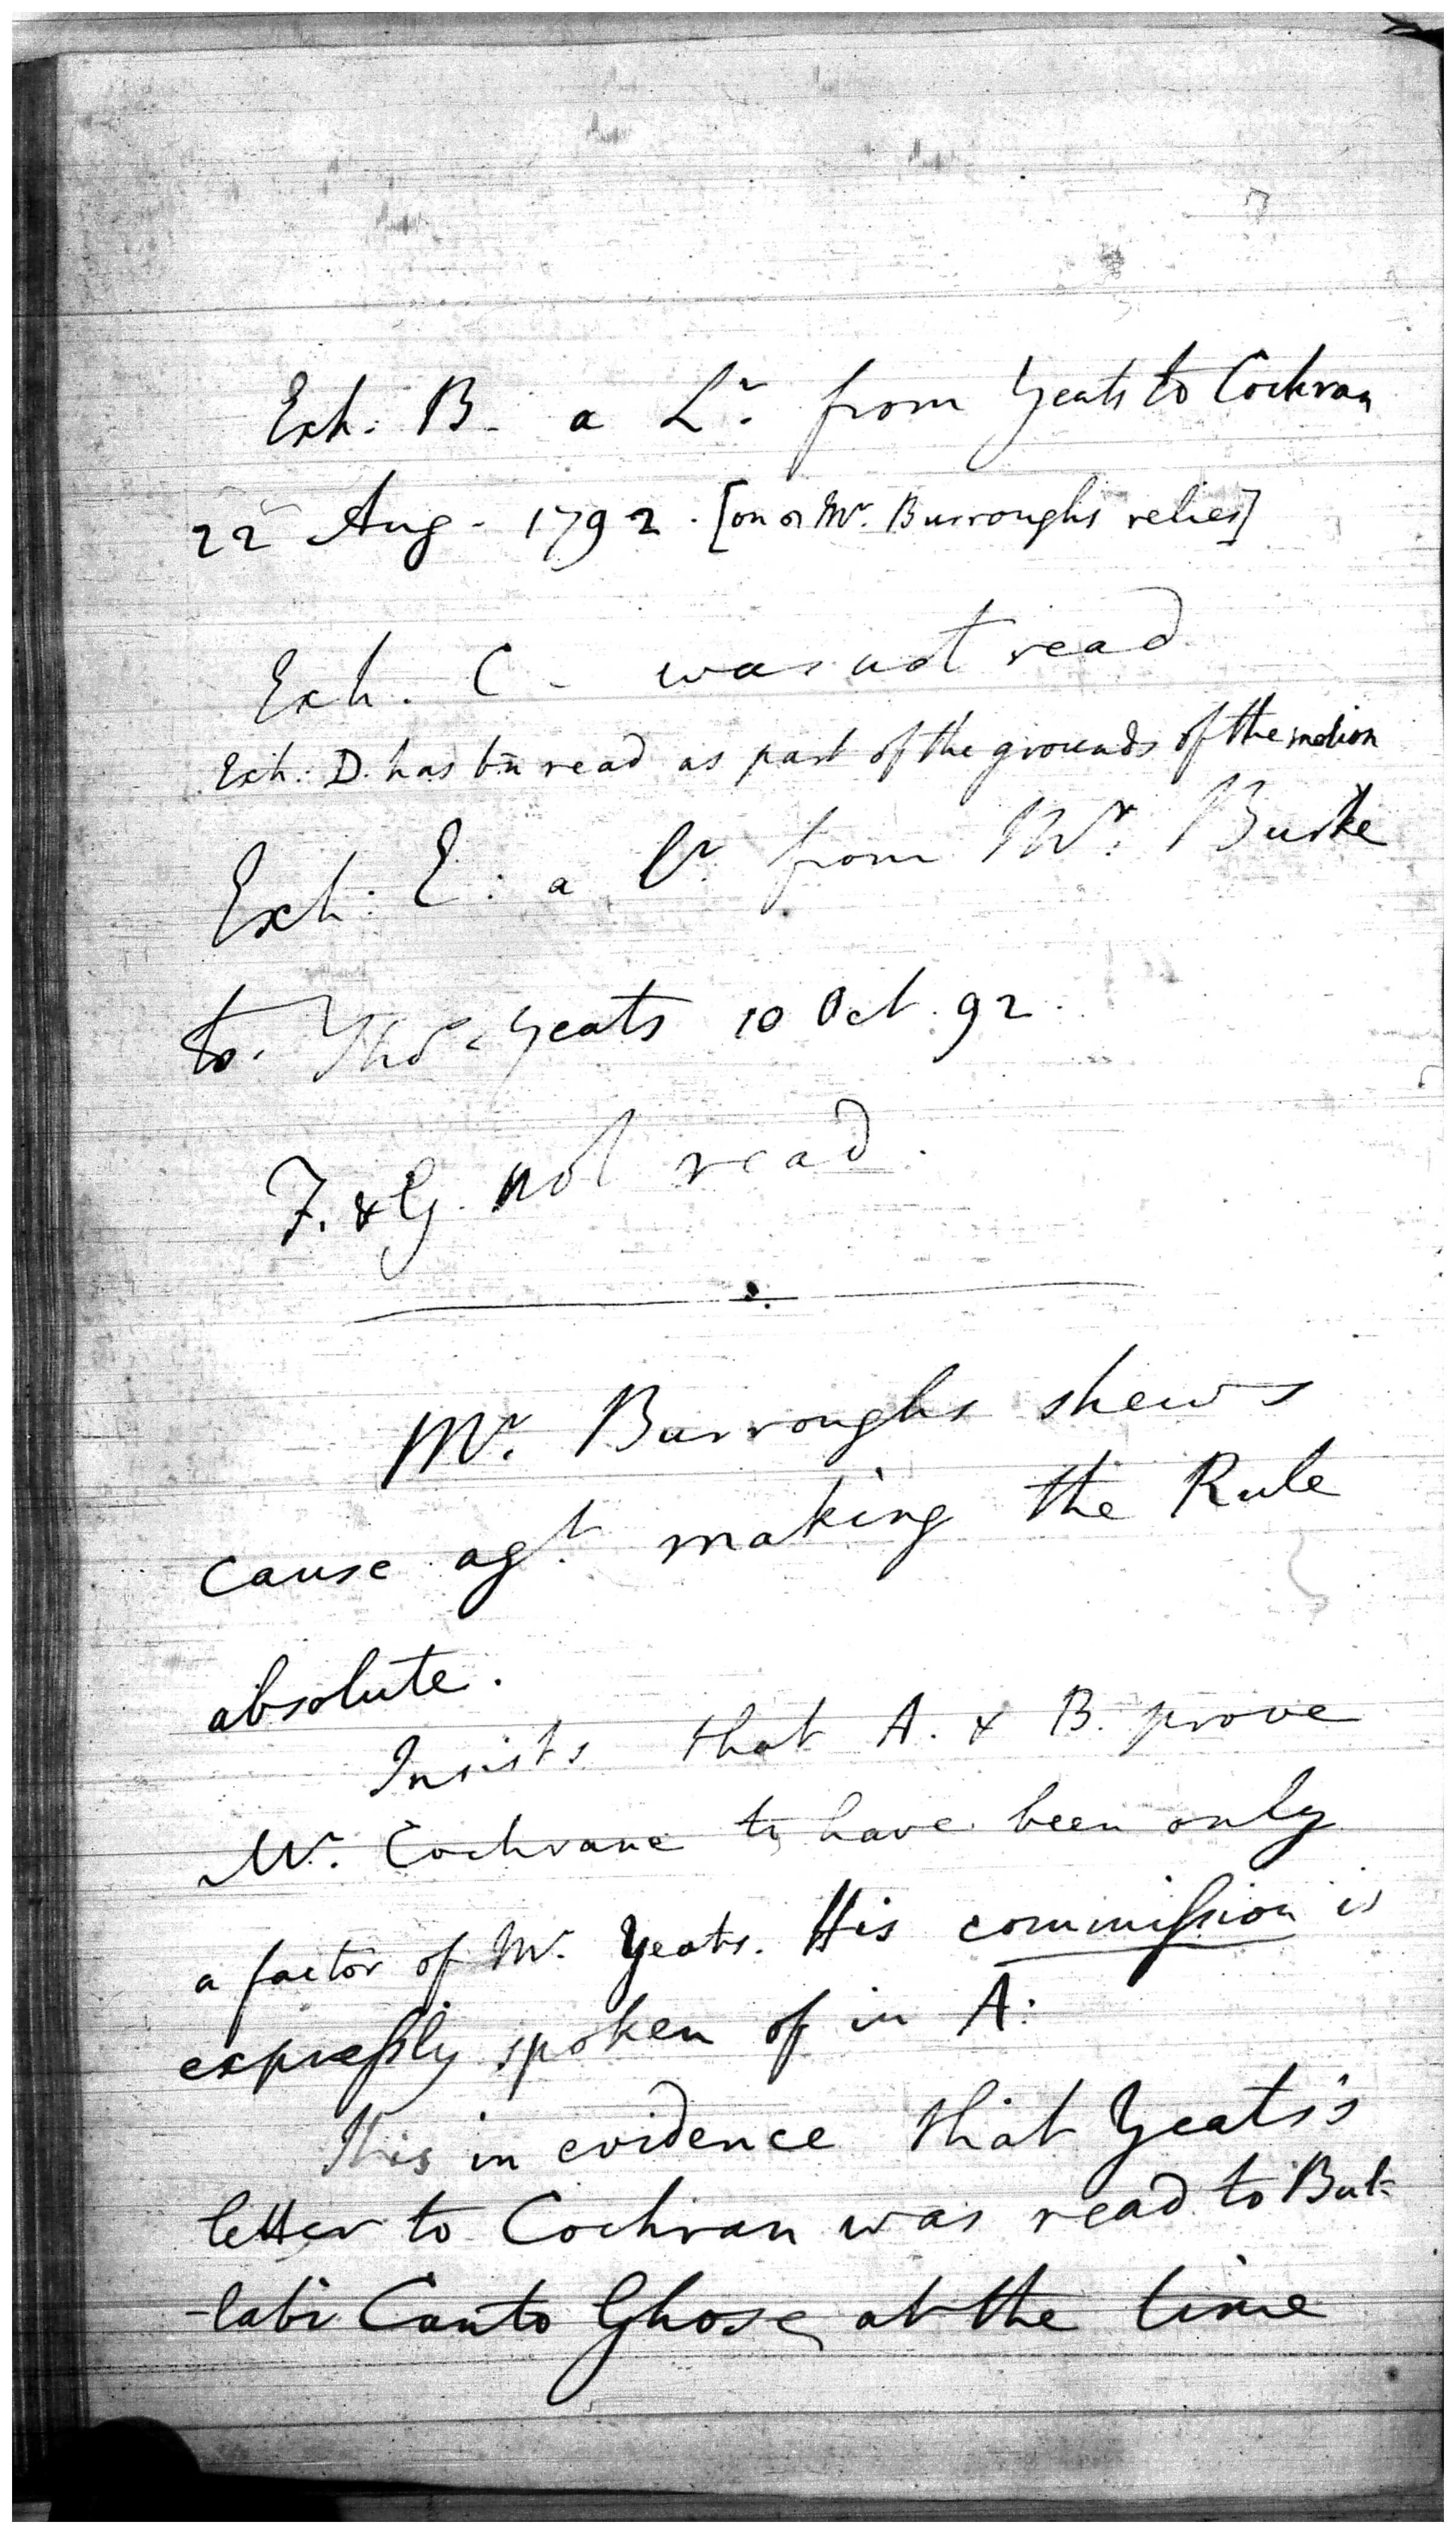 Exh. B. a Lr. from Yeats to Cochran
22 Aug. 1792. [on Mr. Burroughs relies]
Exh. C - was not read
Exh. D. has bn read as part of the grounds of the motion
Exh. E. a Lr. from Mr. Burke
to Thos. Yeats 10 Oct. 92.
F. & G. not read.
Mr. Burroughs shews
cause agt. making the Rule
absolute.
Insists that A. & B. prove
Mr. Cochrane to have been only
a factor of Mr. Yeats. His commission is
expressly spoken of in A.
This in evidence that Yeats's
letter to Cochran was read to Bul-
-labi Canto Ghose at the time